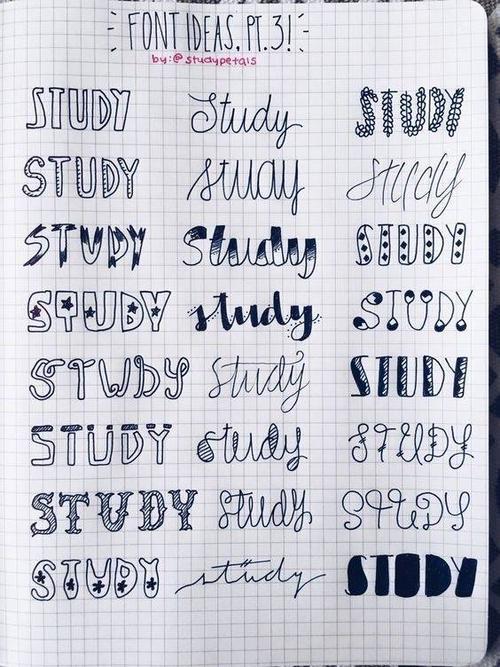 FONT IDEAS, PT.3!
by:@studypetals
STUDY Study STUDY
STUDY study study
STUDY Study STUDY
STUDY study STUDY
STUDY study STUDY
STUDY study STUDY
STUDY study STUDY
STUDY study STUDY